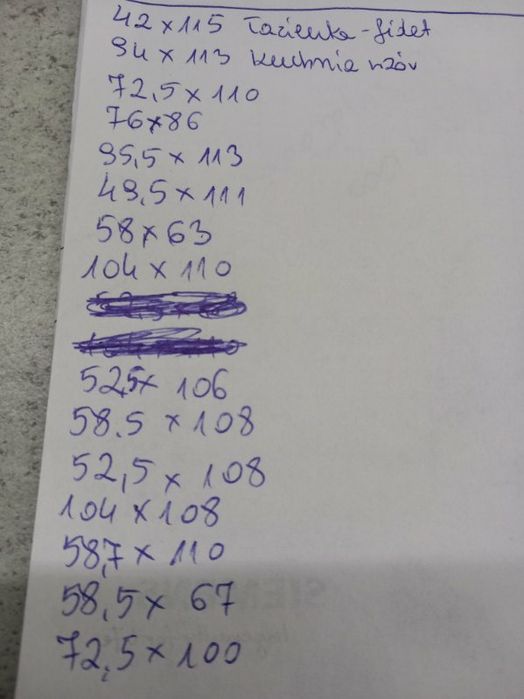 42 x 115 Łazienka - fidet
94 x 113 kuchnia wzór
72,5 x 110
76 x 86
95,5 x 113
49,5 x 111
58 x 63
104 x 110
52,5 x 106
58.5 x 108
52,5 x 108
104 x 108
58,7 x 110
58,5 x 67
72,5 x 100